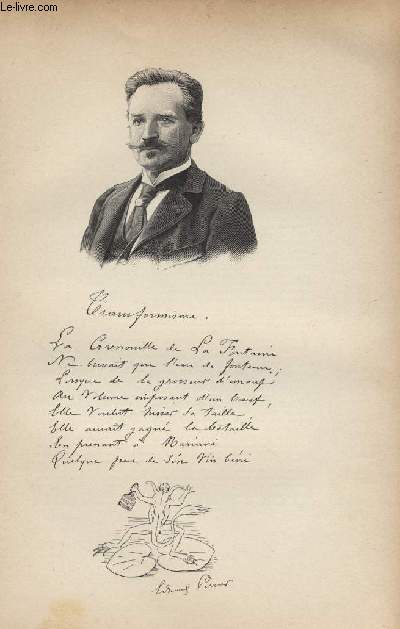 Le-livre.com
Transformisme.
La Grenouille de La Fontaine
Ne buvait que l'eau de fontaine;
Lorsque de la grosseur d'un œuf
Au Volume imposant d'un bœuf,
Elle Voulut hisser sa taille,
Elle aurait gagné la bataille
En prenant à Mariani
Quelque peu de son Vin béni
Edmond Perrier